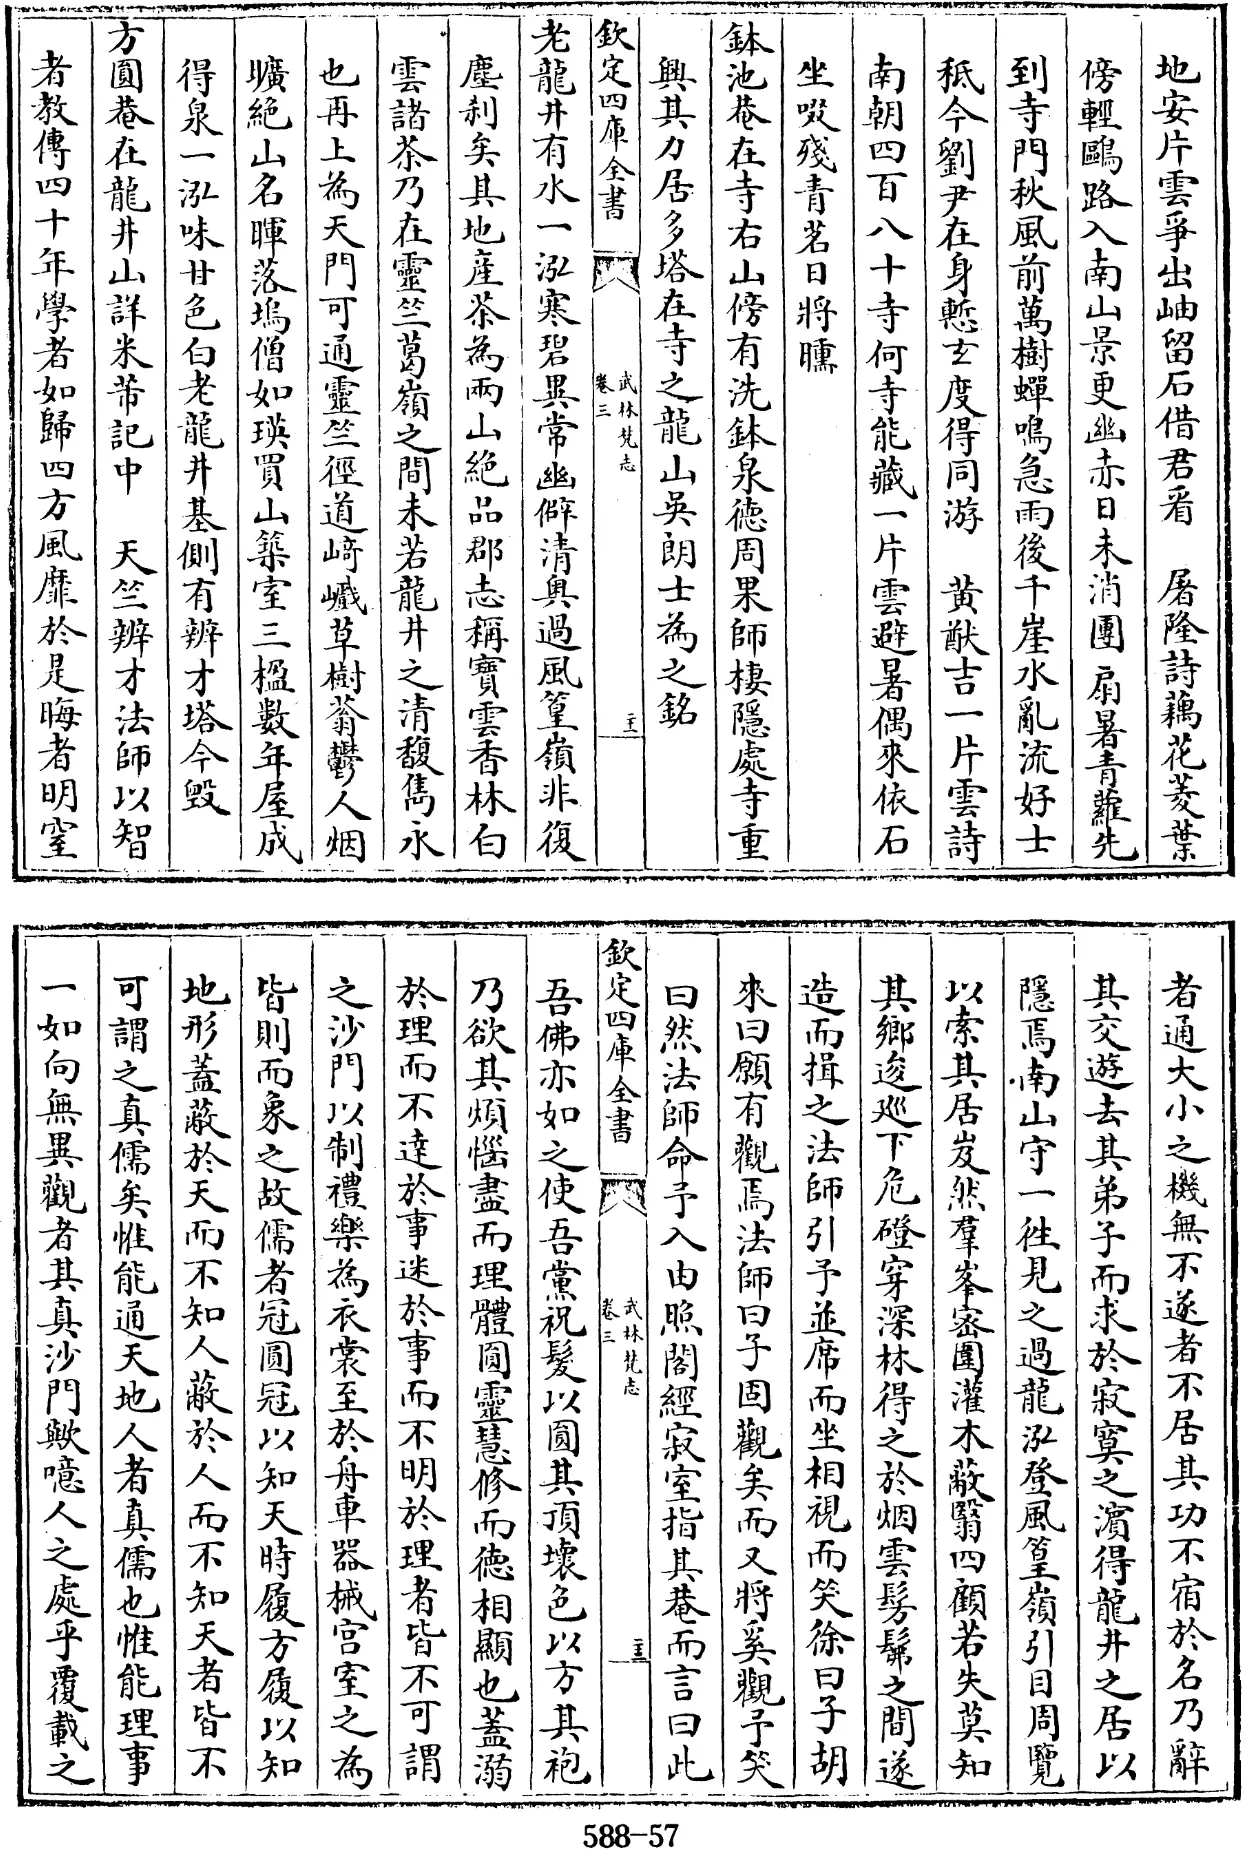 地安片雲爭出岫留石借君看　屠隆詩藕花菱葉
傍輕鷗路入南山景更幽赤日未消團扇暑青蘿先
到寺門秋風前萬樹蟬鳴急雨後千崖水亂流好士
秪今劉尹在身慙玄度得同游　黄猷吉一片雲詩
南朝四百八十寺何寺能藏一片雲避暑偶來依石
坐啜殘青茗日將曛
鉢池菴在寺右山傍有洗鉢泉德周果師棲隱處寺重
興其力居多塔在寺之龍山吳朗士為之銘
欽定四庫全書
武林梵志
卷三
老龍井有水一泓寒碧異常幽僻清奥過風篁嶺非復
塵刹矣其地産茶為兩山絶品郡志稱寳雲香林白
雲諸茶乃在靈竺葛嶺之間未若龍井之清馥雋永
也再上為天門可通靈竺徑道﨑巇草樹蓊鬱人烟
曠絶山名暉落塢僧如瑛買山築室三楹數年屋成
得泉一泓味甘色白老龍井基側有辨才塔今毁
方圓菴在龍井山詳米芾記中　天竺辨才法師以智
者教傳四十年學者如歸四方風靡於是晦者明窒
者通大小之機無不遂者不居其功不宿於名乃辭
其交遊去其弟子而求於寂寞之濵得龍井之居以
隱焉南山守一徃見之過龍泓登風篁嶺引目周覽
以索其居岌然羣峯密圍灌木蔽翳四顧若失莫知
其鄉逡廵下危磴穿深林得之於烟雲髣髴之間遂
造而揖之法師引予並席而坐相視而笑徐曰子胡
來曰願有觀焉法師曰子固觀矣而又將奚觀予笑
曰然法師命予入由照閣經寂室指其菴而言曰此
欽定四庫全書
武林梵志
卷三
吾佛亦如之使吾黨祝髮以圓其頂壊色以方其袍
乃欲其煩惱盡而理體圓靈慧修而德相顯也蓋溺
於理而不達於事迷於事而不明於理者皆不可謂
之沙門以制禮樂為衣裳至於舟車器械宫室之為
皆則而象之故儒者冠圓冠以知天時履方履以知
地形蓋蔽於天而不知人蔽於人而不知天者皆不
可謂之真儒矣惟能通天地人者真儒也惟能理事
一如向無異觀者其真沙門歟噫人之處乎覆載之
588-57